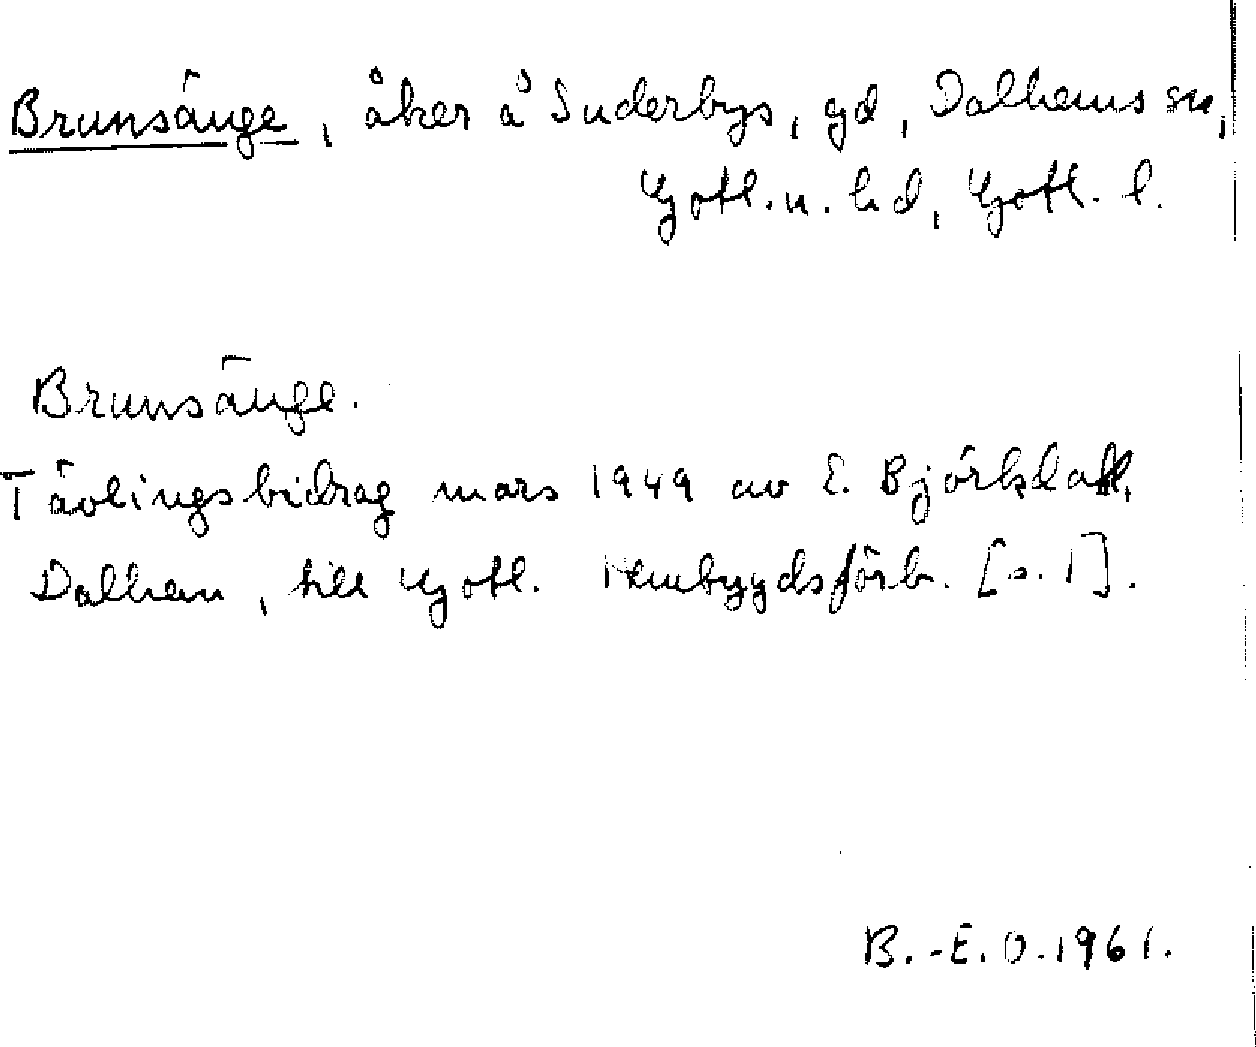 Brunsänge, åker å Suderbys, gd, Dalhems sn,
Gotl. n. hd, Gotl. l.
Brunsänge.
Tävlingsbidrag mars 1949 av E.
Dalhem, till Gotl. Hembygdsförb. [s. 1].
B.-E. O. 1961.